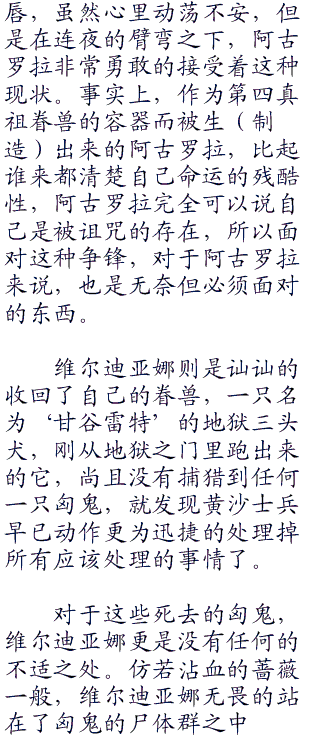 唇，虽然心里动荡不安，但
是在连夜的臂弯之下，阿古
罗拉非常勇敢的接受着这种
现状。事实上，作为第四真
祖眷兽的容器而被生（制
造）出来的阿古罗拉，比起
谁来都清楚自己命运的残酷
性，阿古罗拉完全可以说自
己是被诅咒的存在，所以面
对这种争锋，对于阿古罗拉
来说，也是无奈但必须面对
的东西。
维尔迪亚娜则是讪讪的
收回了自己的眷兽，一只名
为‘甘谷雷特’的地狱三头
犬，刚从地狱之门里跑出来
的它，尚且没有捕猎到任何
一只匈鬼，就发现黄沙士兵
早已动作更为迅捷的处理掉
所有应该处理的事情了。
对于这些死去的匈鬼，
维尔迪亚娜更是没有任何的
不适之处。仿若沾血的蔷薇
一般，维尔迪亚娜无畏的站
在了匈鬼的尸体群之中